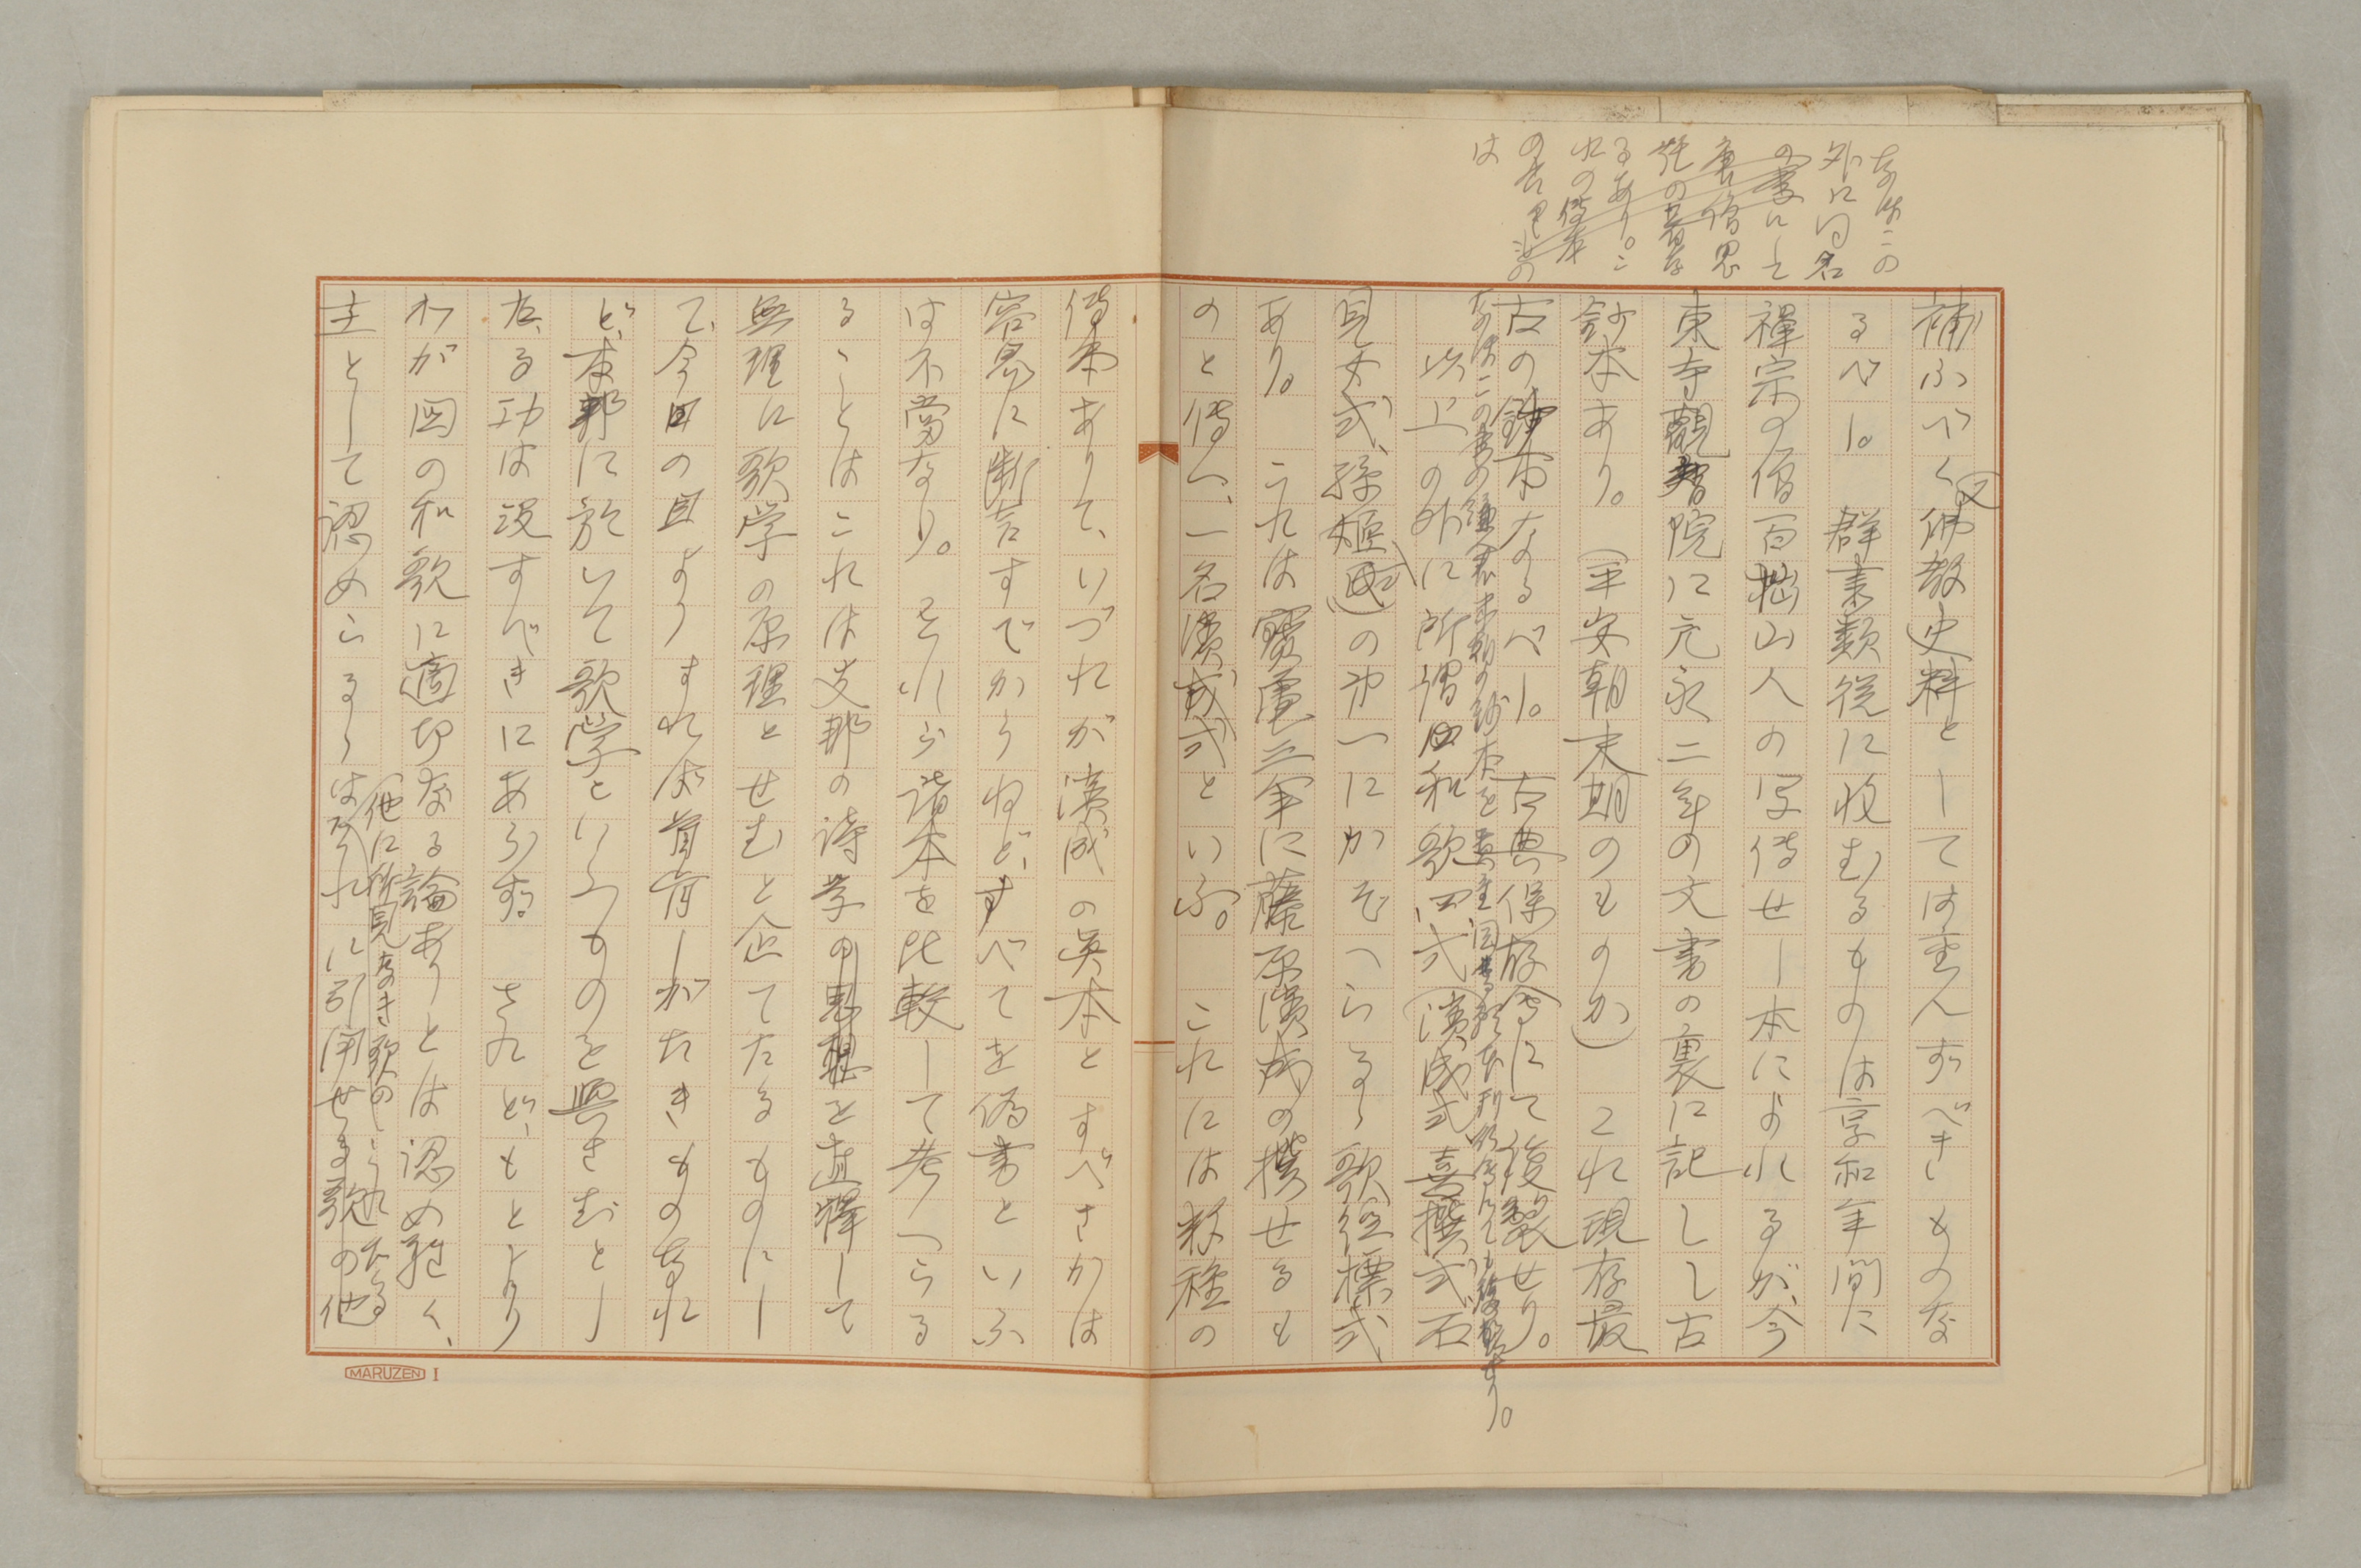 なほこの
外に同名
の書にして
唐僧思
託の著な
るあり。こ
れの傳本
は
補ふべく又佛教史料としては重んずべきものな
るべし。群書類従に收むるものは享和年間に
禅宗の僧百拙山人の写傳せし本によれるが、今
東寺觀智院に元永二年の文書の裏に記しし古
鈔本あり。（平安朝末期のものか）これ現存最
古の鈔本なるべし。古典保存会にて複製せり。
なほこの書の
以上の外に所謂和歌四式（濱成式、喜撰式、石
見女式、孫姫式）の中一にかぞへらるゝ歌経標式
あり。これは寳亀三年に藤原濱成の撰せるも
のと傳へ、一名濱成式といふ。これには数種の
傳本ありて、いづれが濱成の真本とすべきかは
容易に断言すべからねど、すべてを偽書といふ
は不當なり。それら諸本を比較して考へらる
ることはこれは支那の詩学の思想を直譯して
無理に歌学の原理とせむと企てたるものにし
て、今日の目よりすれば首肯しがたきものなれ
ど、本邦に於いて歌学といふものを興さむとし
たる功は没すべきにあらず。されど、もとより
わが国の和歌に適切なる論ありとは認め難く、
他に所見なき歌の
主として認めらるゝは、これに引用せる歌の他
MARUZEN I